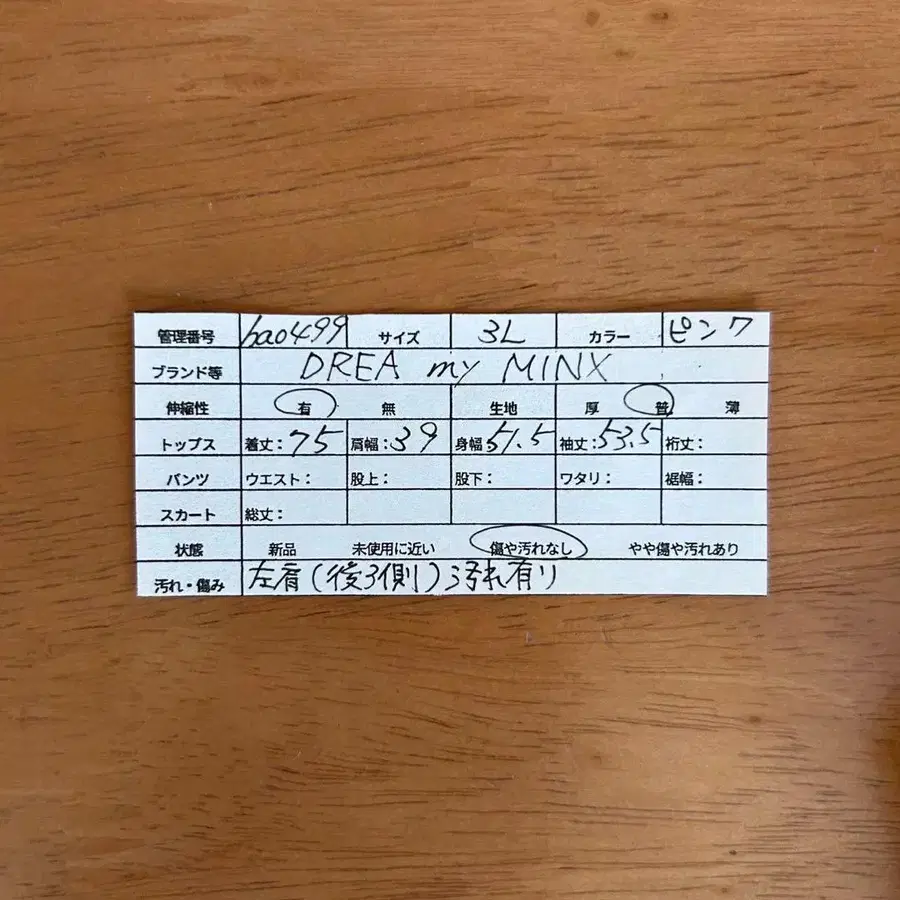 管理番号 hao499 サイズ 3L カラー ピンク
ブランド等 DREA my MINX
伸縮性 有 無 生地 厚 普 薄
トップス 着丈:75 肩幅:39 身幅:51.5 袖丈:53.5 裄丈:
パンツ ウエスト: 股上: 股下: ワタリ: 裾幅:
スカート 総丈:
状態 新品 未使用に近い 傷や汚れなし やや傷や汚れあり
汚れ・傷み 左肩(後ろ側)汚れ有り